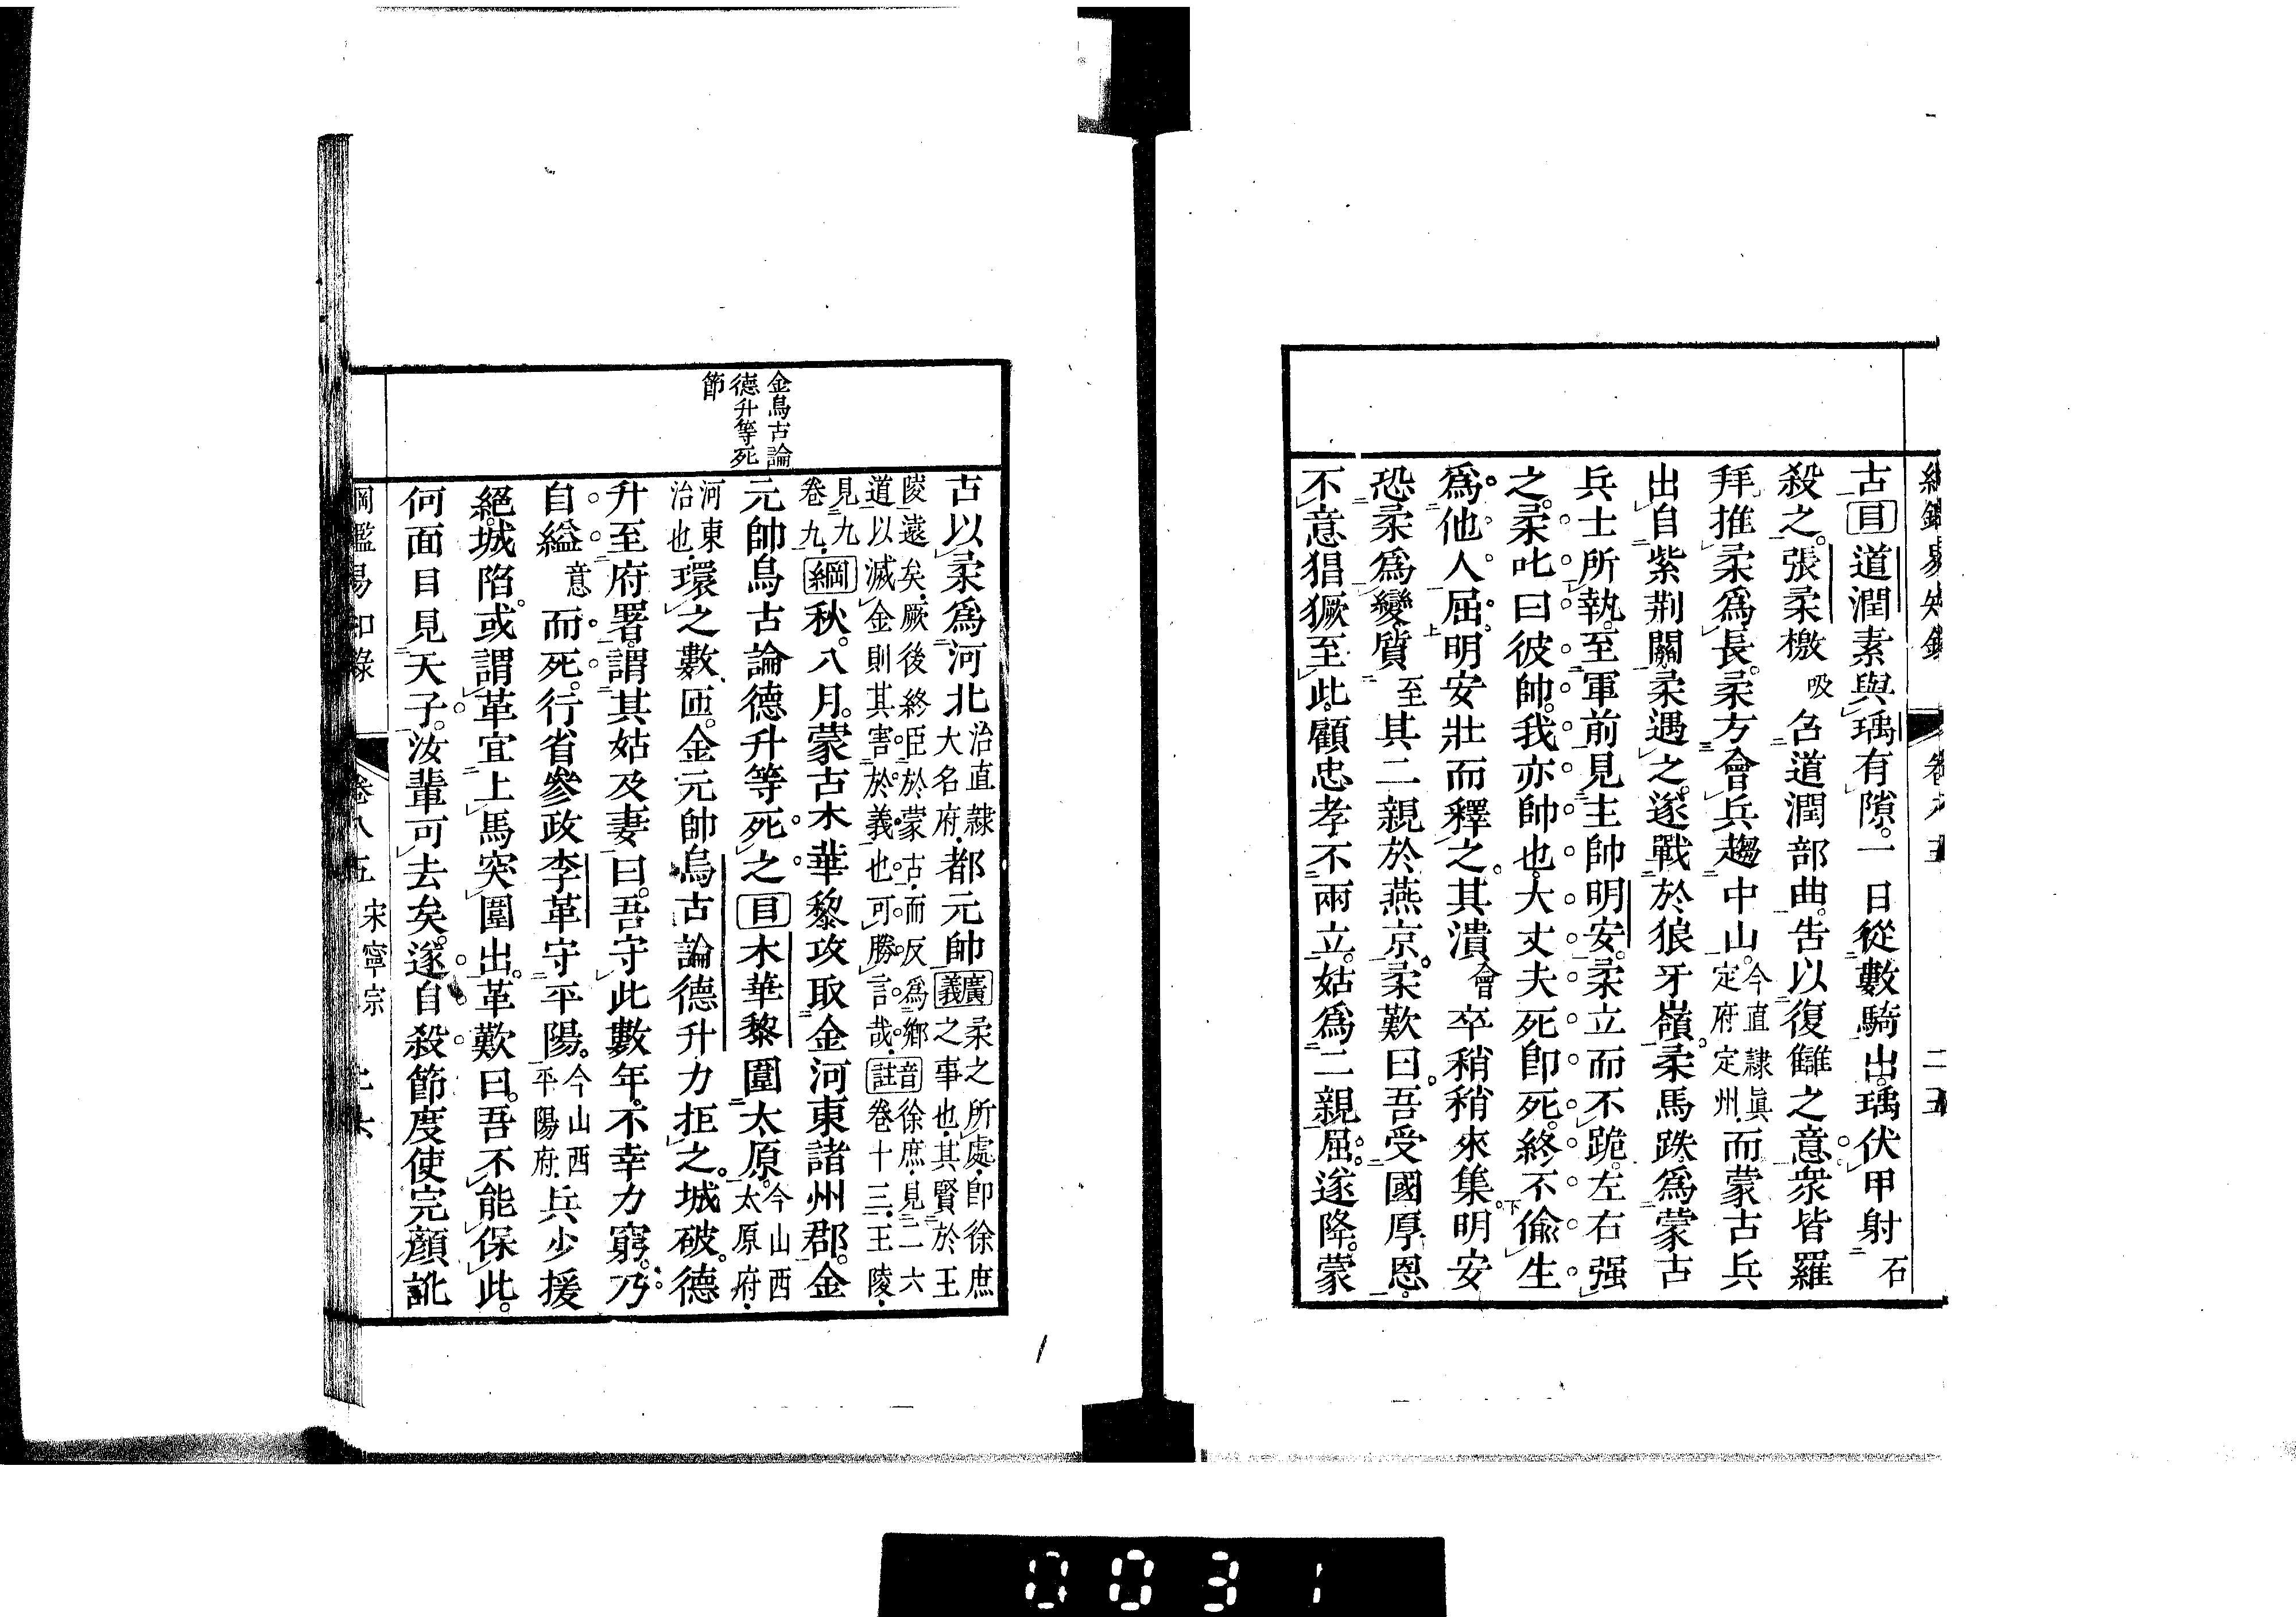 古目道潤素與瑀有隙。一日從數騎出。瑀伏甲射石
殺之。張柔檄吸召道潤部曲。告以復讎之意。衆皆羅
拜推柔爲長。柔方會兵趨中山。今直隷眞定府定州。而蒙古兵
出自紫荆關。柔遇之。遂戰於狼牙嶺。柔馬跌。爲蒙古
兵士所執。至軍前見主帥明安。柔立而不跪。左右强
之。柔叱曰彼帥。我亦帥也。大丈夫死卽死。終不偸生
爲他人屈。明安壯而釋之。其潰會卒稍稍來集。明安
恐柔爲變。質至其二親於燕京。柔歎曰。吾受國厚恩。
不意猖獗至此。顧忠孝不兩立。姑爲二親屈。遂降。蒙
金烏古論
德升等死
節
古以柔爲河北治直隷大名府。都元帥廣義柔之所處。卽徐庶之事也。其賢於王
陵遠矣。厥後終臣於蒙古。而反爲鄉
道以滅金。則其害於義也。可勝言哉。音註徐庶。見二一六卷十三。王陵。
見九卷九。綱秋。八月。蒙古木華黎攻取金河東諸州郡。金
元帥烏古論德升等死之目木華黎圍太原。今山西太原府。
河東治也。環之數匝。金元帥烏古論德升力拒之。城破。德
升至府署。謂其姑及妻曰。吾守此數年。不幸力窮。乃
自縊意而死。行省參政李革守平陽。今山西平陽府。兵少援
絕。城陷。或謂革宜上馬突圍出。革歎曰。吾不能保此。
何面目見天子。汝輩可去矣。遂自殺。節度使完顏訛
綱鑑易知錄 卷八五 宋寧宗